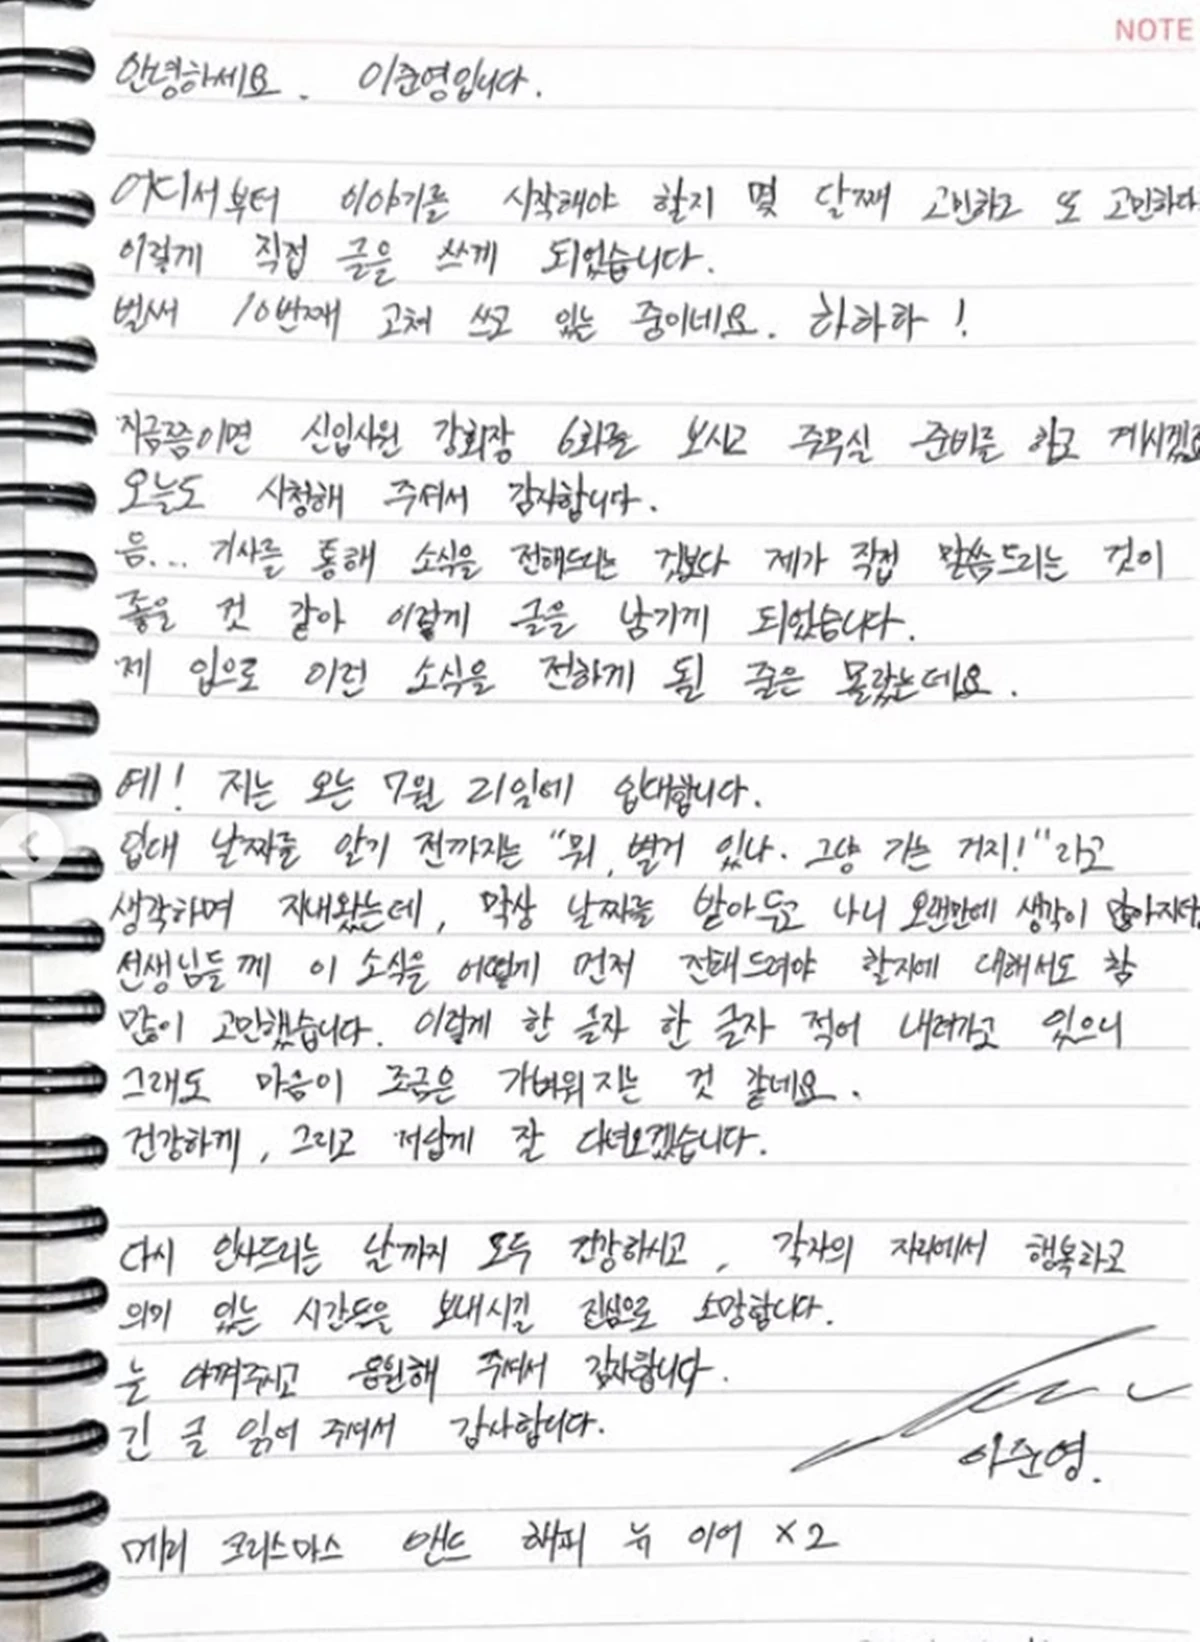 NOTE
안녕하세요. 이준영입니다.
어디서부터 이야기를 시작해야 할지 몇 달째 고민하고 또 고민하다
이렇게 직접 글을 쓰게 되었습니다.
벌써 10번째 고쳐 쓰고 있는 중이네요. 하하하!
지금쯤이면 신입사원 강회장 6화를 보시고 주무실 준비를 하고 계시겠죠
오늘도 시청해 주셔서 감사합니다.
음... 기사를 통해 소식을 전해드리는 것보다 제가 직접 말씀드리는 것이
좋을 것 같아 이렇게 글을 남기게 되었습니다.
제 입으로 이런 소식을 전하게 될 줄은 몰랐는데요.
예! 저는 오는 7월 21일에 입대합니다.
입대 날짜를 알기 전까지는 "뭐, 별거 있나. 그냥 가는 거지!"라고
생각하며 지내왔는데, 막상 날짜를 받아두고 나니 오랜만에 생각이 많아지더
선생님들께 이 소식을 어떻게 먼저 전해드려야 할지에 대해서도 참
많이 고민했습니다. 이렇게 한 글자 한 글자 적어 내려가고 있으니
그래도 마음이 조금은 가벼워지는 것 같네요.
건강하게, 그리고 저답게 잘 다녀오겠습니다.
다시 인사드리는 날까지 모두 건강하시고, 각자의 자리에서 행복하고
의미 있는 시간들을 보내시길 진심으로 소망합니다.
늘 아껴주시고 응원해 주셔서 감사합니다.
긴 글 읽어 주셔서 감사합니다.
이준영.
메리 크리스마스 앤드 해피 뉴 이어 X2